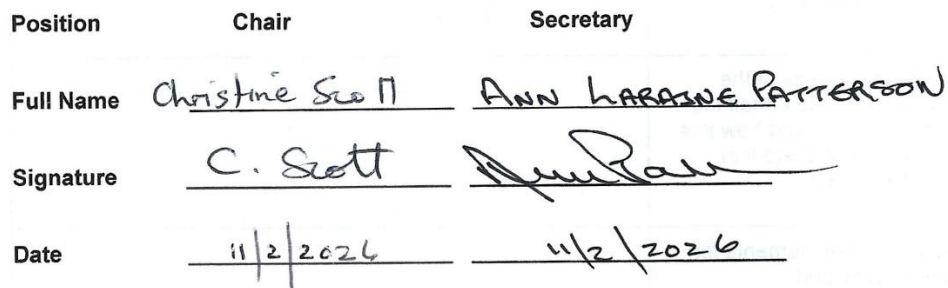 Position Chair Secretary
Full Name Christine Scott ANN LARAINE PATTERSON
Signature C. Scott
Date 11/2/2026 11/2/2026